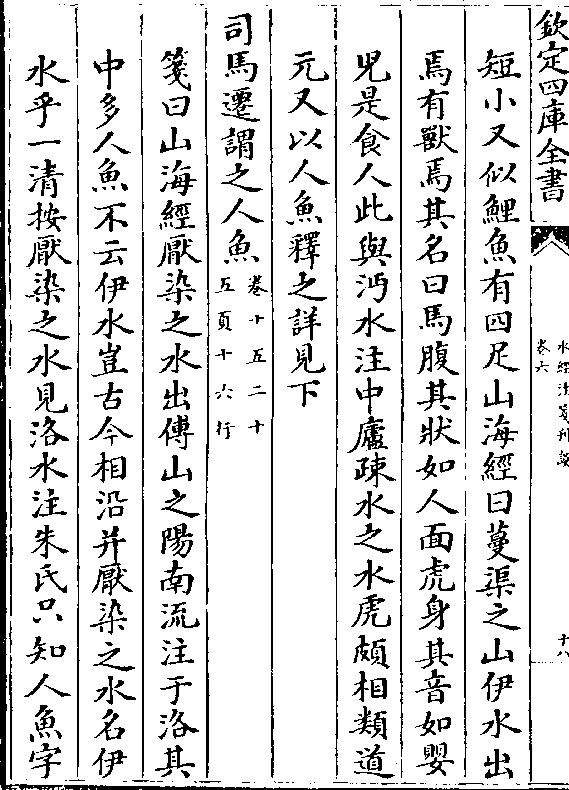 欽定四庫全書
水經注箋刊誤
卷六
十八
短小又似鯉魚有四足山海經曰蔓渠之山伊水出
焉有獸焉其名曰馬腹其狀如人面虎身其音如嬰
兒是食人此與沔水注中廬疎水之水虎頗相類道
元又以人魚釋之詳見下
司馬遷謂之人魚卷十五二十五頁十六行
箋曰山海經厭染之水出傅山之陽南流注于洛其
中多人魚不云伊水豈古今相沿并厭染之水名伊
水乎一清按厭染之水見洛水注朱氏只知人魚字